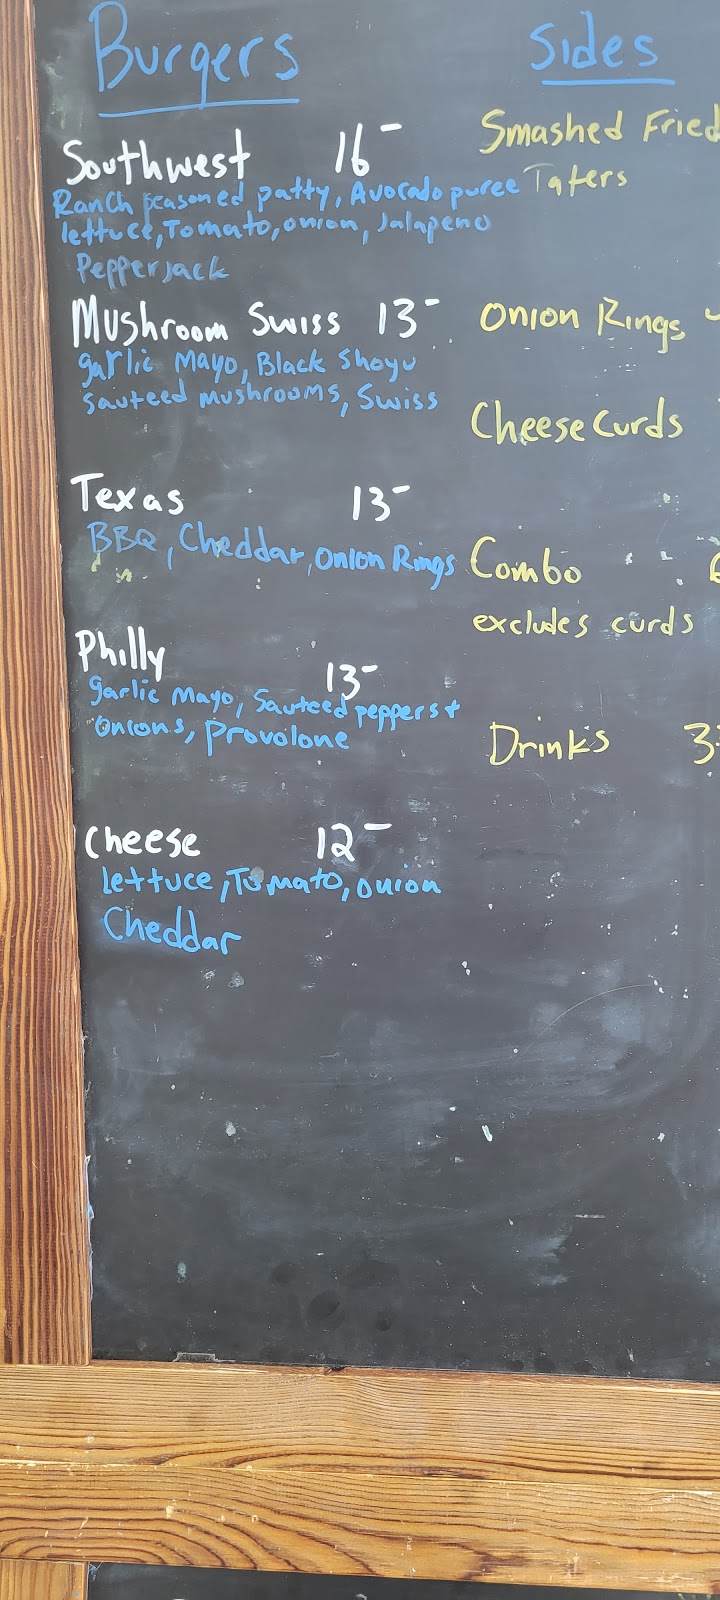 Burgers
Southwest 16-
Ranch seasoned patty, Avocado puree
lettuce, Tomato, onion, Jalapeno
Pepperjack
Mushroom Swiss 13-
garlic Mayo, Black Shoyu
sauteed mushrooms, Swiss
Texas 13-
BBQ, Cheddar, Onion Rings
Philly 13-
garlic Mayo, Sauteed peppers +
onions, provolone
Cheese 12-
lettuce, Tomato, onion
Cheddar
Sides
Smashed Fried
Taters
Onion Rings
Cheese Curds
Combo
excludes curds
Drinks